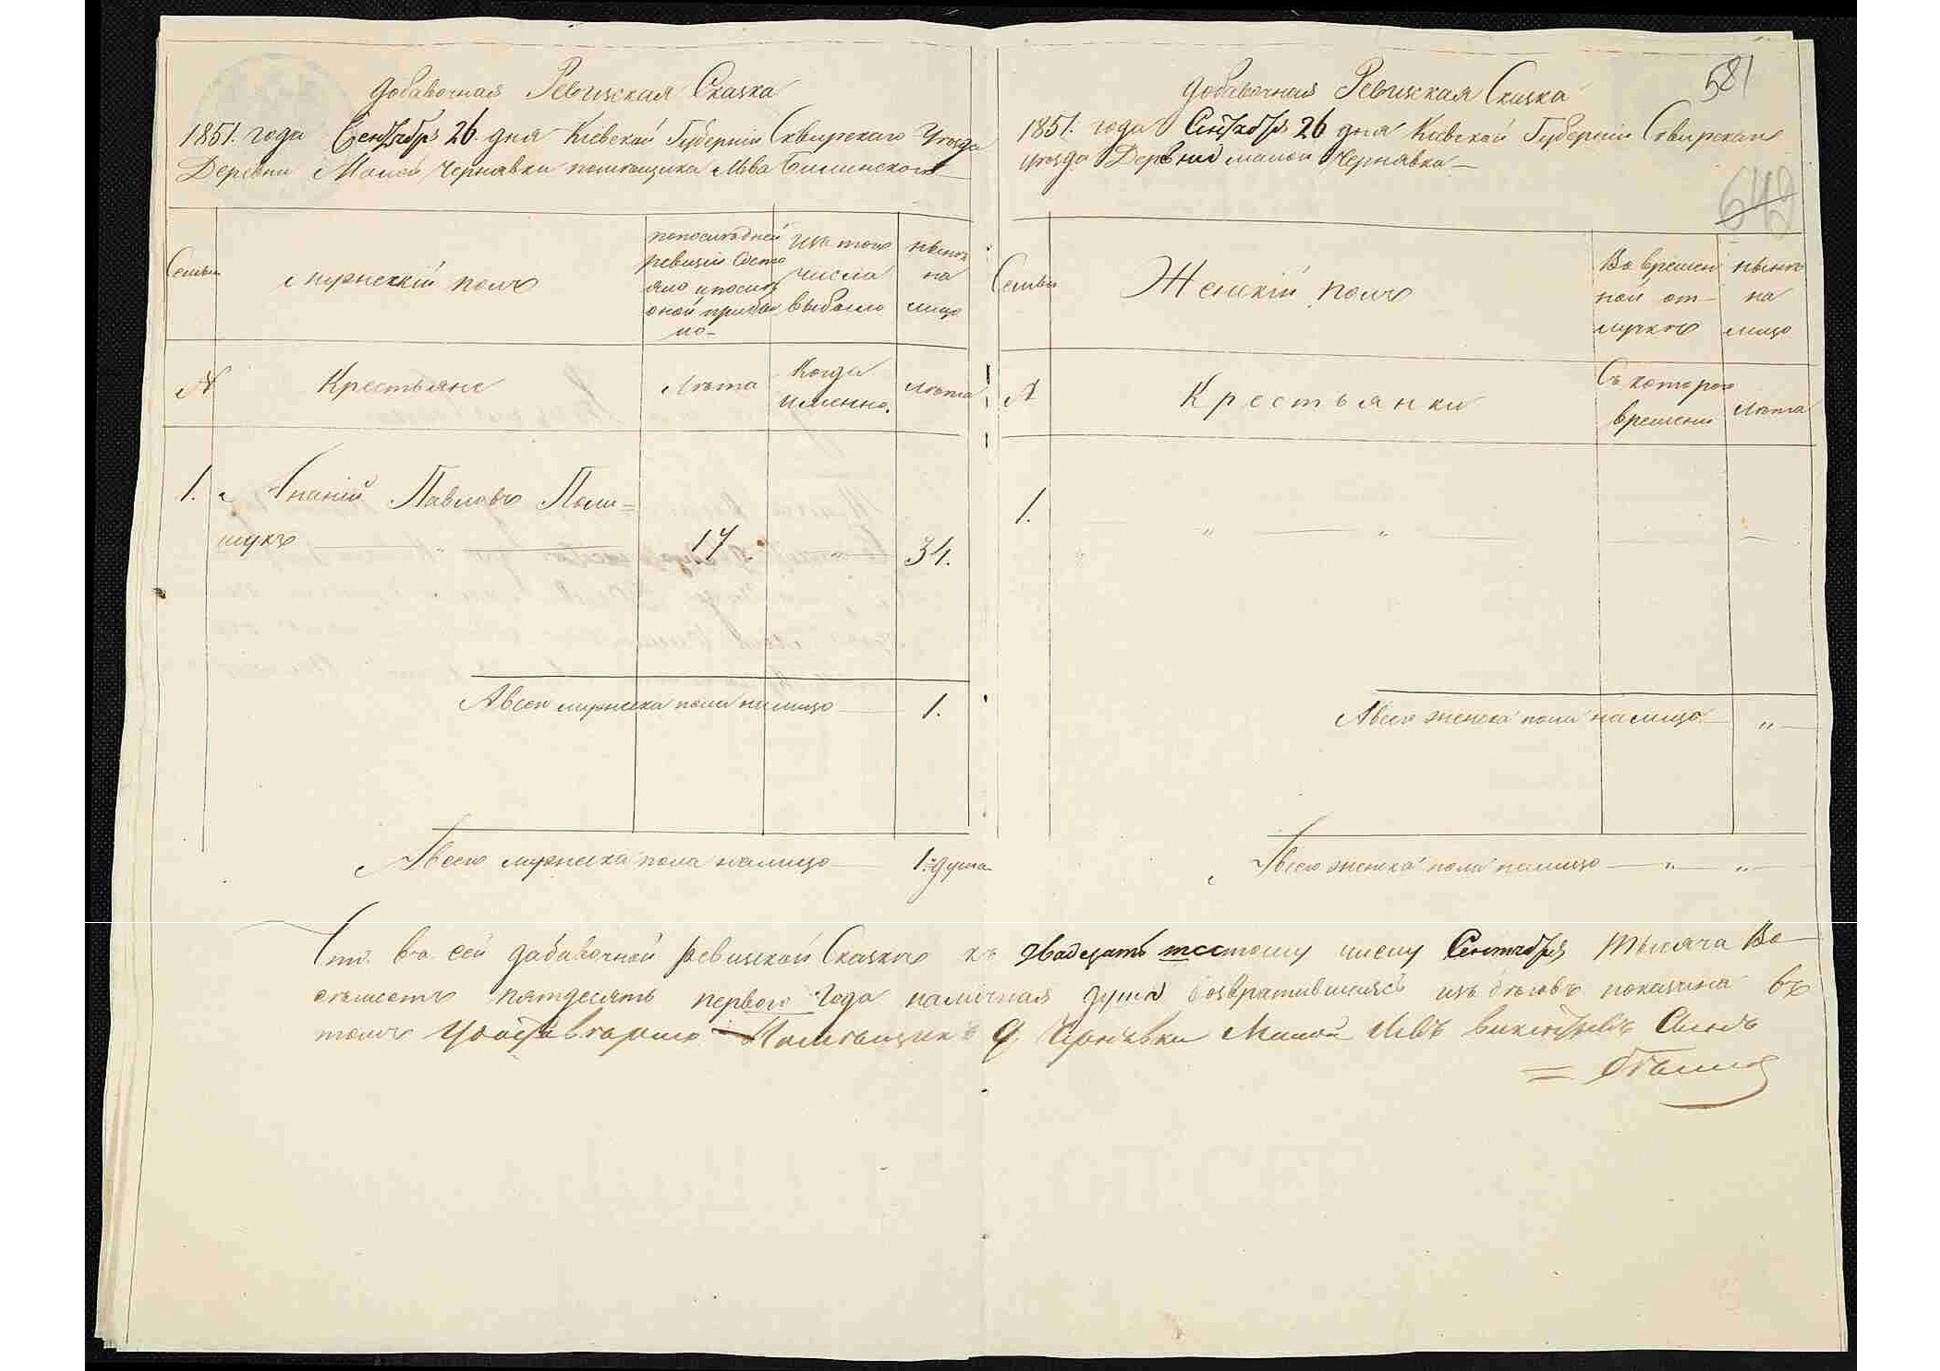 Добавочная Ревизская Сказка
1851. года Сентября 26 дня Киевской Губерніи Сквирскаго Уѣзда
Деревни Малой Чернявки помѣщика Льва
Семьи
Мужескій полъ
по послѣдней
ревизіи состо
яло и послѣ
оной прибы
ло
изъ того
числа
выбыло
нынѣ
на
лицо
№
Крестьяне
Лѣта
Когда
именно.
Лѣта
1. Ананій Павловъ Поли=
щукъ — „ — 17 — „ — 34.
Авсего мужеска пола налицо — 1.
Авсего мужеска пола налицо — 1. душа
Добавочная Ревизская Сказка
581
1851. года Сентября 26 дня Киевской Губерніи Сквирскаго
уѣзда Деревни малой Чернявки —
649
Семьи
Женскій полъ
Во времен
ной от—
лучкѣ
нынѣ
на
лицо
№
Крестьянки
Съ котораго
времени
Лѣта
1. — „ — „ —
Авсего женска пола налицо — „ —
Авсего женска пола налицо — „ — „ —
Что въ сей добавочной ревизской Сказкѣ къ двадцать шестому числу Сентября Тысяча Во—
семьсотъ пятдесятъ первого Года наличная душа возвратившаяся изъ бѣговъ показана въ
томъ Помѣщикъ Д. Чернявки Малой Левъ Викентьевъ Сынъ